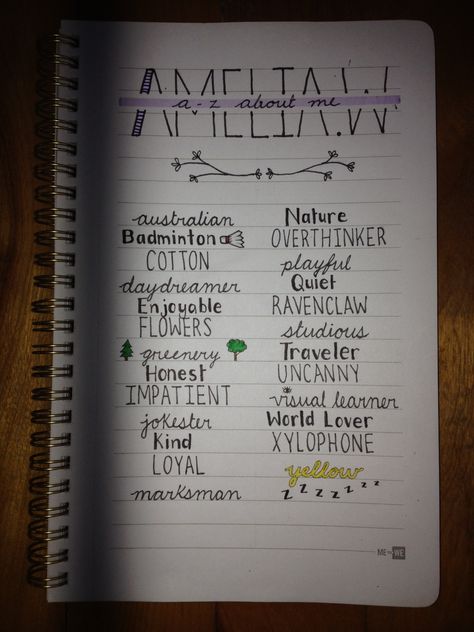 AMELIA.W
a-z about me
australian
Badminton
COTTON
daydreamer
Enjoyable
FLOWERS
greenery
Honest
IMPATIENT
jokester
Kind
LOYAL
marksman
Nature
OVERTHINKER
playful
Quiet
RAVENCLAW
studious
Traveler
UNCANNY
visual learner
World Lover
XYLOPHONE
yellow
z z z z z z z
ME to WE